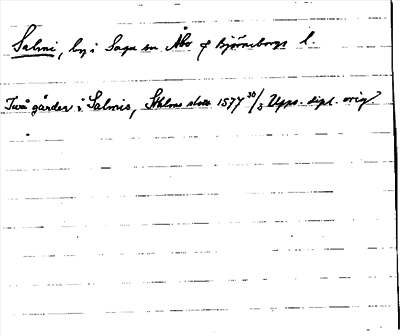 Salmi, by i Sagu sn. Åbo & Björneborgs l.
Två gårder i Salmis, Sthlms slott 1577 30/3 Upps. dipl. orig.